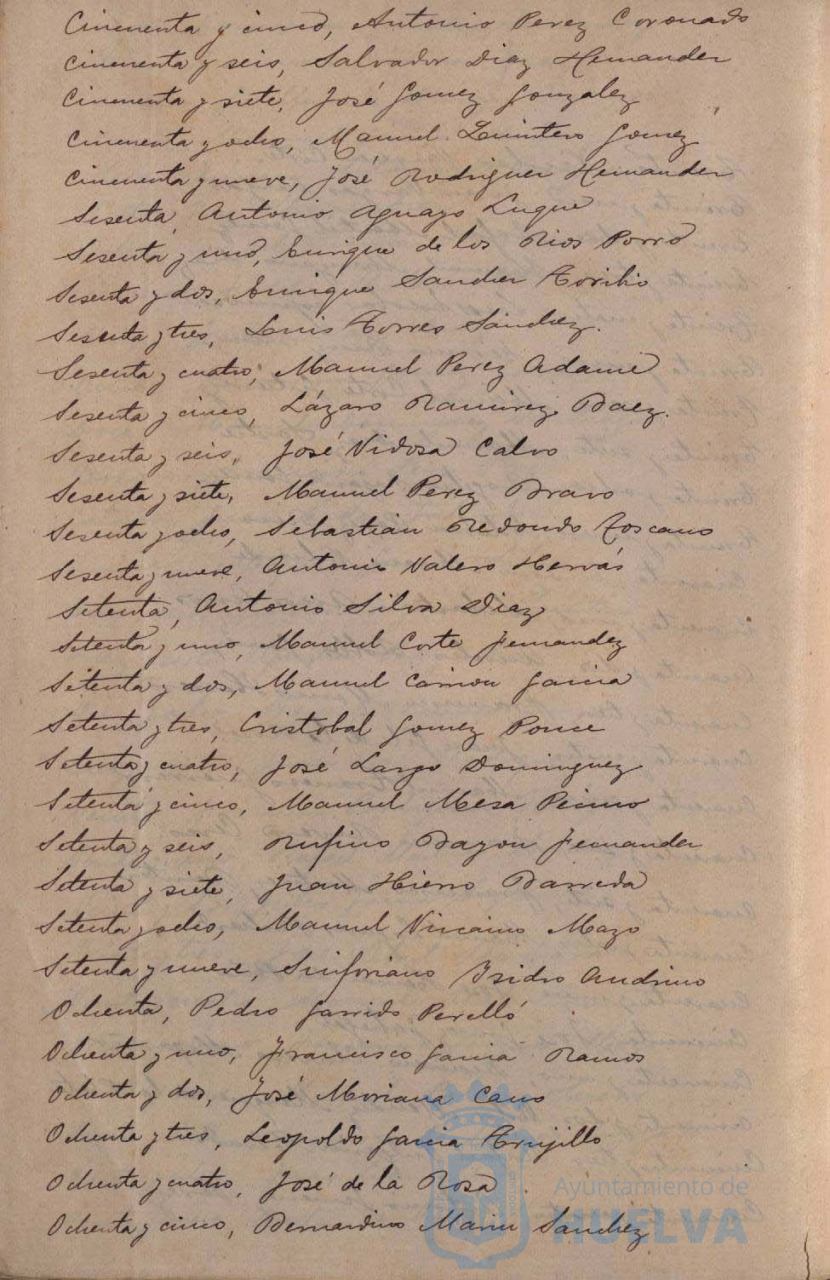 Cincuenta y cinco, Antonio Perez Coronado
Cincuenta y seis, Salvador Diaz Hernandez
Cincuenta y siete, José Gomez Gonzalez
Cincuenta y ocho, Manuel Quintero Gomez
Cincuenta y nueve, José Rodriguez Hernandez
Sesenta, Antonio Aguayo Luque
Sesenta y uno, Enrique de los Rios Porro
Sesenta y dos, Enrique Sanchez Toribio
Sesenta y tres, Luis Torres Sánchez.
Sesenta y cuatro, Manuel Perez Adame
Sesenta y cinco, Lázaro Ramirez Baez.
Sesenta y seis, José Vidosa Calvo
Sesenta y siete, Manuel Perez Bravo
Sesenta y ocho, Sebastian Redondo Toscano
Sesenta y nueve, Antonio Valero Hervás
Setenta, Antonio Silva Diaz
Setenta y uno, Manuel Corte Fernandez
Setenta y dos, Manuel Carrion Garcia
Setenta y tres, Cristobal Gomez Ponce
Setenta y cuatro, José Largo Dominguez
Setenta y cinco, Manuel Mesa
Setenta y seis, Rufino Bayon Fernandez
Setenta y siete, Juan Hierro Barreda
Setenta y ocho, Manuel Vizcaino Mazo
Setenta y nueve, Sinforiano Isidro Andrino
Ochenta, Pedro Garrido Perelló
Ochenta y uno, Francisco Garcia Ramos
Ochenta y dos, José Moriana Cano
Ochenta y tres, Leopoldo Garcia Trujillo
Ochenta y cuatro, José de la Rosa
Ochenta y cinco, Bernardino Marin Sanchez
Ayuntamiento de
HUELVA